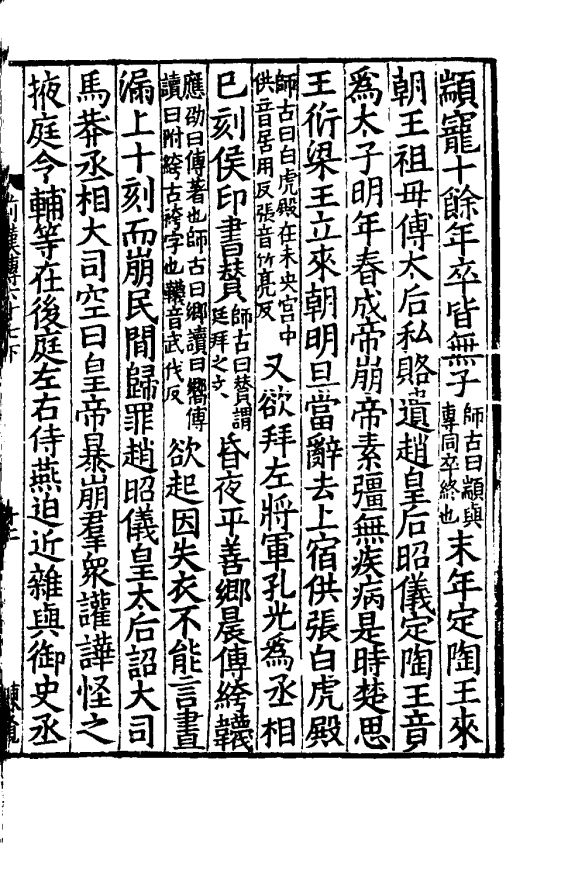 顓寵十餘年卒皆無子師古曰顓與專同卒終也末年定陶王來
朝王祖母傅太后私賂遺趙皇后昭儀定陶王竟
爲太子明年春成帝崩帝素彊無疾病是時楚思
王衍梁王立來朝明旦當辭去上宿供張白虎殿
師古曰白虎殿在未央宮中供音居用反張音竹亮反又欲拜左將軍孔光爲丞相
已刻侯印書贊師古曰贊謂廷拜之文、昏夜平善鄉晨傅絝韤
應劭曰傅著也師古曰鄉讀曰嚮傅讀曰附絝古袴字也韤音武伐反欲起因失衣不能言晝
漏上十刻而崩民間歸罪趙昭儀皇太后詔大司
馬莽丞相大司空曰皇帝暴崩羣衆讙譁怪之
掖庭令輔等在後庭左右侍燕迫近雜與御史丞
前漢傳六十七下